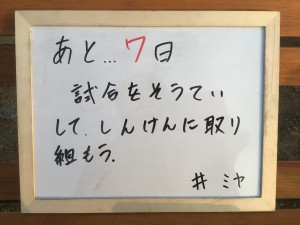 あと...7日
試合をそうてい
して、しんけんに取り
組もう.
井 ミヤ